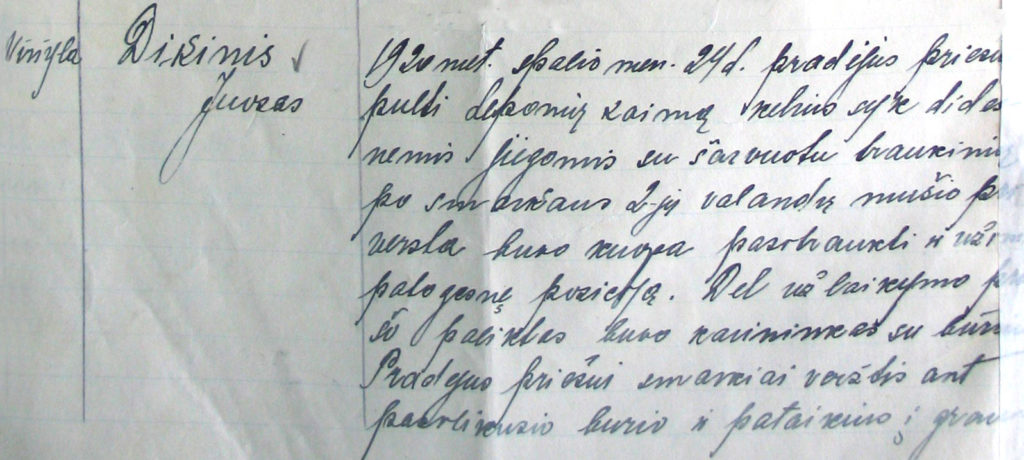 Viršyla
Dikinis
Juozas
1920 met. spalio men. 24 d. pradėjus priešu
pulti Leponių kaimą kelius syk dides
nemis jiegomis su šarvuotu traukiniu
po smarkaus 2-jų valandų mušio p
versta buvo kuopa pasitraukti ir už
patogesnę poziciją. Del užlaikymo pr
šo paliktas buvo karininkas su bur
Pradėjus priešui smarkiai veržtis ant
pasilikusio burio ir pataikius į gran